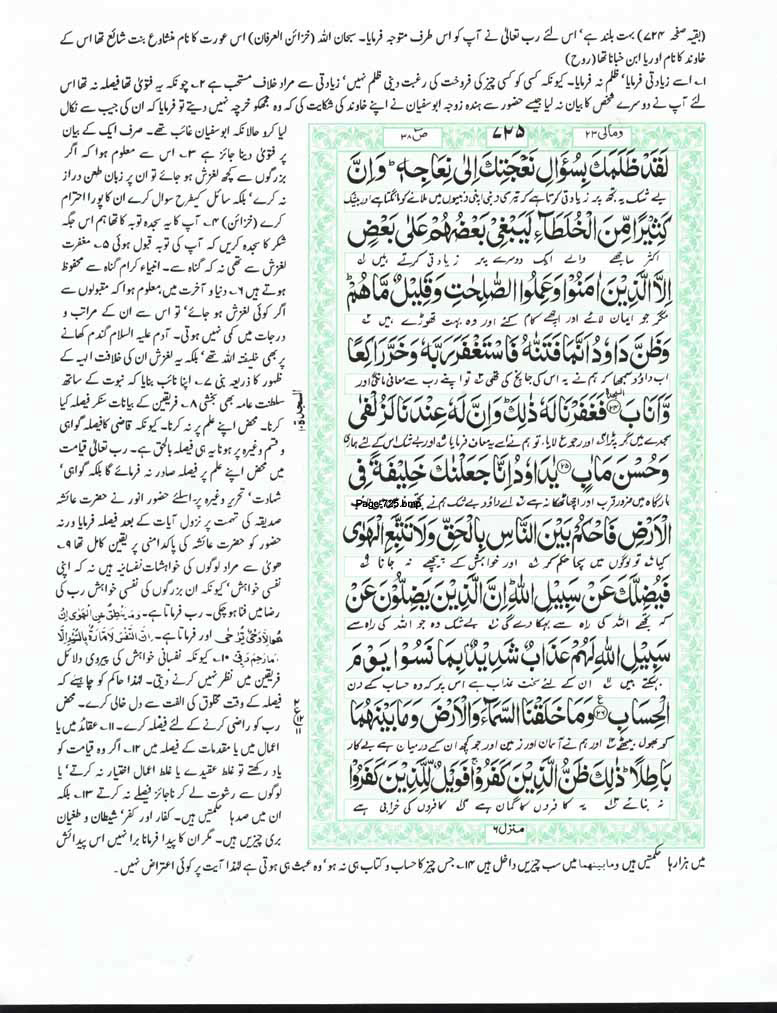 (بقیہ صفحہ ۷۲۴) بہت بلند ہے' اس لئے رب تعالیٰ نے آپ کو اس طرف متوجہ فرمایا۔ سبحان اللہ (خزائن العرفان) اس عورت کا نام منشاوع بنت شائع تھا اس کے
خاوند کا نام اوریا ابن خیانا تھا (روح)
۱۔ اسے زیادتی فرمایا' ظلم نہ فرمایا۔ کیونکہ کسی کو کسی چیز کی فروخت کی رغبت دینی ظلم نہیں' زیادتی سے مراد خلاف مستحب ہے ۲۔ چونکہ یہ فتویٰ تھا فیصلہ نہ تھا اس
لئے آپ نے دوسرے شخص کا بیان نہ لیا جیسے حضور سے ہندہ زوجہ ابوسفیان نے اپنے خاوند کی شکایت کی کہ وہ مجھکو خرچہ نہیں دیتے تو فرمایا کہ ان کی جیب سے نکال
ومالی ۲۳
۷۲۵
ص ۳۸
لَقَدْ ظَلَمَكَ بِسُؤَالِ نَعْجَتِكَ اِلٰى نِعَاجِهٖ وَاِنَّ
بے شک یہ تجھ پر زیادتی کرتا ہے کہ تیری دنبی اپنی دنبیوں میں ملانے کو مانگتا ہے اور بیشک
كَثِيْرًا مِّنَ الْخُلَطَآءِ لَيَبْغِيْ بَعْضُهُمْ عَلٰى بَعْضٍ
اکثر ساجھے والے ایک دوسرے پر زیادتی کرتے ہیں
اِلَّا الَّذِيْنَ اٰمَنُوْا وَعَمِلُوا الصّٰلِحٰتِ وَقَلِيْلٌ مَّا هُمْ
مگر جو ایمان لائے اور اچھے کام کئے اور وہ بہت تھوڑے ہیں
وَظَنَّ دَاوٗدُ اَنَّمَا فَتَنّٰهُ فَاسْتَغْفَرَ رَبَّهٗ وَخَرَّ رَاكِعًا
اب داؤد سمجھا کہ ہم نے یہ اس کی جانچ کی تھی تو اپنے رب سے معافی مانگی اور
وَّاَنَابَ ۲۴ فَغَفَرْنَا لَهٗ ذٰلِكَ وَاِنَّ لَهٗ عِنْدَنَا لَزُلْفٰى
سجدے میں گر پڑا اور رجوع لایا تو ہم نے اسے یہ معاف فرمایا اور بے شک اس کے لئے ہماری
وَحُسْنَ مَاٰبٍ ۲۵ يٰدَاوٗدُ اِنَّا جَعَلْنٰكَ خَلِيْفَةً فِى
بارگاہ میں ضرور قرب اور اچھا ٹھکانا ہے اے داؤد بے شک ہم نے تجھے
Page-725.bmp
الْاَرْضِ فَاحْكُمْ بَيْنَ النَّاسِ بِالْحَقِّ وَلَا تَتَّبِعِ الْهَوٰى
کیا تو لوگوں میں سچا حکم کر اور خواہش کے پیچھے نہ جانا
فَيُضِلَّكَ عَنْ سَبِيْلِ اللّٰهِ اِنَّ الَّذِيْنَ يَضِلُّوْنَ عَنْ
کہ تجھے اللہ کی راہ سے بہکا دے گی بے شک وہ جو اللہ کی راہ سے
سَبِيْلِ اللّٰهِ لَهُمْ عَذَابٌ شَدِيْدٌۢ بِمَا نَسُوْا يَوْمَ
بہکتے ہیں ان کے لئے سخت عذاب ہے اس پر کہ وہ حساب کے دن
الْحِسَابِ ۲۶ وَمَا خَلَقْنَا السَّمَآءَ وَالْاَرْضَ وَمَا بَيْنَهُمَا
کو بھول بیٹھے اور ہم نے آسمان اور زمین اور جو کچھ ان کے درمیان ہے بے کار
بَاطِلًا ذٰلِكَ ظَنُّ الَّذِيْنَ كَفَرُوْا فَوَيْلٌ لِّلَّذِيْنَ كَفَرُوْا
نہ بنائے یہ کافروں کا گمان ہے کافروں کی خرابی ہے
منزل ۶
السجدة ۱۰
لیا کرو حالانکہ ابوسفیان غائب تھے۔ صرف ایک کے بیان
پر فتویٰ دینا جائز ہے ۳۔ اس سے معلوم ہوا کہ اگر
بزرگوں سے کچھ لغزش ہو جائے تو ان پر زبان طعن دراز
نہ کرے' بلکہ سائل کیطرح سوال کرے ان کا پورا احترام
کرے (خزائن) ۴۔ آپ کا یہ سجدہ توبہ کا تھا ہم اس جگہ
شکر کا سجدہ کریں کہ آپ کی توبہ قبول ہوئی ۵۔ مغفرت
لغزش سے تھی نہ کہ گناہ سے۔ انبیاء کرام گناہ سے محفوظ
ہوتے ہیں ۶۔ دنیا و آخرت میں معلوم ہوا کہ مقبولوں سے
اگر کوئی لغزش ہو جائے' تو اس سے ان کے مراتب و
درجات میں کمی نہیں ہوتی۔ آدم علیہ السلام گندم کھانے
پر بھی خلیفتہ اللہ تھے' بلکہ یہ لغزش ان کی خلافت الہیہ کے
ظہور کا ذریعہ بنی ۷۔ اپنا نائب بنایا کہ نبوت کے ساتھ
سلطنت عامہ بھی بخشی ۸۔ فریقین کے بیانات سنکر فیصلہ کیا
کرنا۔ محض اپنے علم پر نہ کرنا۔ کیونکہ قاضی کا فیصلہ گواہی
و قسم وغیرہ پر ہونا یہ ہی فیصلہ بالحق ہے۔ رب تعالیٰ قیامت
میں محض اپنے علم پر فیصلہ صادر نہ فرمائے گا بلکہ گواہی'
شہادت' تحریر وغیرہ پر۔ اسلئے حضور انور نے حضرت عائشہ
صدیقہ کی تہمت پر نزول آیات کے بعد فیصلہ فرمایا ورنہ
حضور کو حضرت عائشہ کی پاکدامنی پر یقین کامل تھا ۹۔
ھویٰ سے مراد لوگوں کی خواہشات نفسانیہ ہیں نہ کہ اپنی
نفسی خواہش' کیونکہ ان بزرگوں کی نفسی خواہش رب کی
رضا میں فنا ہو چکی۔ رب فرماتا ہے۔ وَمَا يَنْطِقُ عَنِ الْهَوٰى اِنْ
هُوَ اِلَّا وَحْيٌ يُّوْحٰى اور فرماتا ہے۔ اِنَّ النَّفْسَ لَاَمَّارَةٌۢ بِالسُّوْٓءِ اِلَّا
مَا رَحِمَ رَبِّيْ ۱۰۔ کیونکہ نفسانی خواہش کی پیروی دلائل
فریقین میں نظر نہیں کرنے دیتی۔ لہٰذا حاکم کو چاہیے کہ
فیصلہ کے وقت مخلوق کی الفت سے دل خالی کرے۔ محض
رب کو راضی کرنے کے لئے فیصلہ کرے۔ ۱۱۔ عقائد میں یا
اعمال میں یا مقدمات کے فیصلہ میں ۱۲۔ اگر وہ قیامت کو
یاد رکھتے تو غلط عقیدے یا غلط اعمال اختیار نہ کرتے' یا
لوگوں سے رشوت لے کر ناجائز فیصلے نہ کرتے ۱۳۔ بلکہ
ان میں صدہا حکمتیں ہیں۔ کفار اور کفر' شیطان و طغیان
بری چیزیں ہیں۔ مگر ان کا پیدا فرمانا برا نہیں اس پیدائش
میں ہزارہا حکمتیں ہیں وما بینھما میں سب چیزیں داخل ہیں ۱۴۔ جس چیز کا حساب و کتاب ہی نہ ہو' وہ عبث ہی ہوتی ہے لہٰذا آیت پر کوئی اعتراض نہیں۔